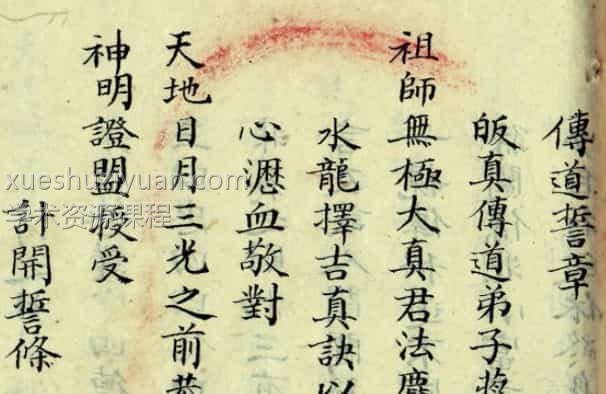 傳道誓章
皈真傳道弟子蔣
祖師無極大真君法
水龍擇吉真訣以
心瀝血敬對
天地日月三光之前恭
神明證盟授受
計開誓條
xueshuziyuan.com
学术资源课程